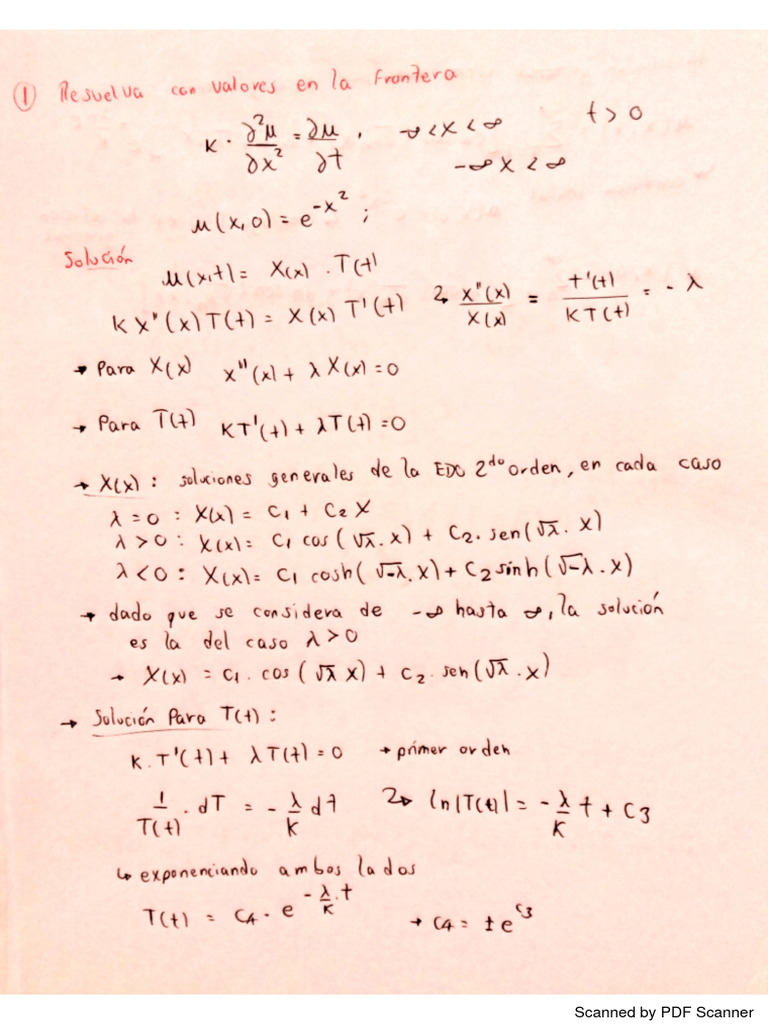 ① Resuelva con valores en la frontera
K · ∂²μ/∂x² = ∂μ/∂t , -∞ < x < ∞ t > 0
-∞ X < ∞
μ(x,0) = e^{-x²} ;
Solución
μ(x,t) = X(x) . T(t)
K X''(x) T(t) = X(x) T'(t) X''(x)/X(x) = T'(t)/KT(t) = - λ
→ Para X(x) X''(x) + λ X(x) = 0
→ Para T(t) KT'(t) + λT(t) = 0
→ X(x) : soluciones generales de la EDO 2do orden, en cada caso
λ = 0 : X(x) = C1 + C2 X
λ > 0 : X(x) = C1 cos(√λ . x) + C2 . sen(√λ . x)
λ < 0 : X(x) = C1 cosh(√-λ . x) + C2 sinh(√-λ . x)
→ dado que se considera de -∞ hasta ∞, la solución
es la del caso λ > 0
→ X(x) = C1 . cos(√λ x) + C2 . sen(√λ . x)
→ Solución Para T(t) :
K . T'(t) + λ T(t) = 0 → primer orden
1/T(t) . dT = - λ/K dt ln|T(t)| = - λ/K t + C3
↳ exponenciando ambos lados
T(t) = C4 . e^{- λ/K . t} → C4 = ± e^{C3}
Scanned by PDF Scanner